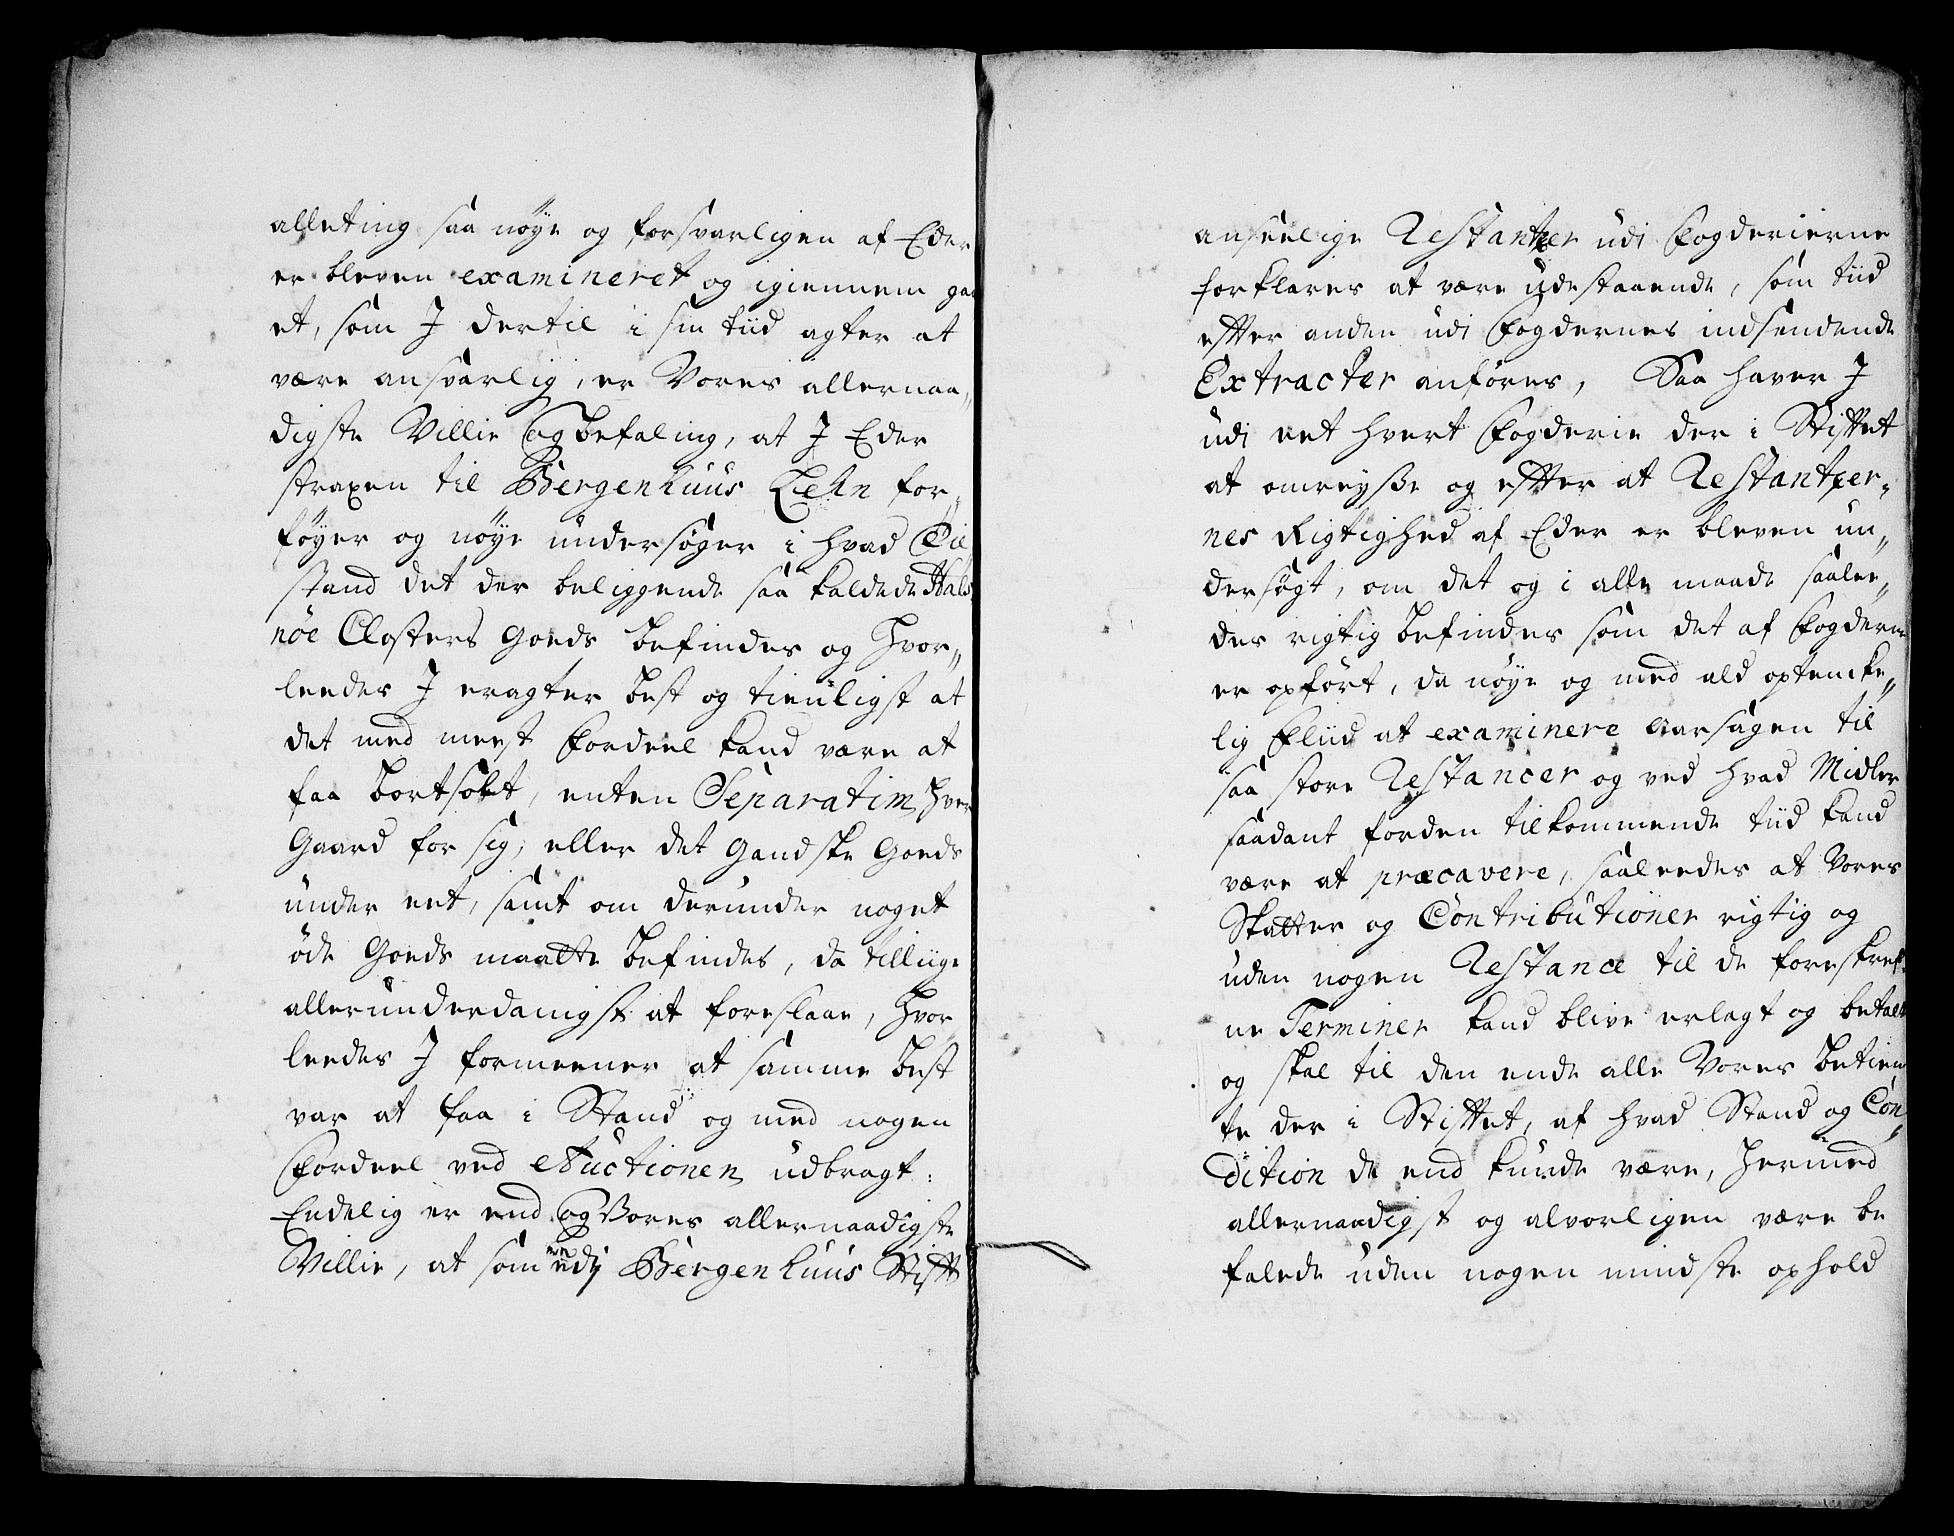 alleting saa nöye og forsvarligen af Eder
er bleven examineret og igiennem gaa
et, som J dertil i sin tiid agter at
være ansvarlig, er Vores allernaa„
digste Villie og befaling, at J Eder
straxen til Bergenhuus Lehn for„
föyer og nöye undersöger i hvad Til
stand det der beliggende saa kaldede Hals
nöe Closters Goeds befindes og hvor„
leedes J eragter best og tienligst at
det med meest Fordeel kand være at
faa bortsolt, enten Separatim hver
Gaard for sig, eller det gandske Goeds
under eet, samt om derunder noget
öde Goeds maatte befindes, da tilliige
allerunderdanigst at foreslaae, hvor
leedes J formeener at samme best
var at faa i Stand og med nogen
Fordeel ved Auctionen udbragt:
Endelig er end og Vores allernaadigste
Villie, at som een udj Bergenhuus Stift
anseelige Restantzer udi Fogderierne
forklares at være udestaaende, som tiid
efter anden udi Fogdernes indsendende
Extracter anföres, Saa haver J
udi eet hvert Fogderie der i Stiftet
at omreyße og efter at Restantzer„
nes Rigtighed af Eder er bleven un„
dersögt, om det og i alle maade saalee„
des rigtig befindes som det af Fogderne
er opfört, da nöye og med ald optencke„
lig Fliid at examinere Aarsagen til
saa store Restancer og ved hvad Midler
saadant forden tilkommende tiid kand
være at præcavere, saaleedes at Vores
Skatter og Contributioner rigtig og
uden nogen Restance til de foreskref„
ne Terminer kand blive erlagt og betalt
og skal til den ende alle Vores betien
te der i Stiftet, af hvad Stand og Con„
dition de end kunde være, hermed
allernaadigst og alvorligen være be
falede uden nogen mindste ophold